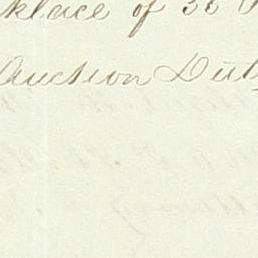 klace of 38
Auction Duty